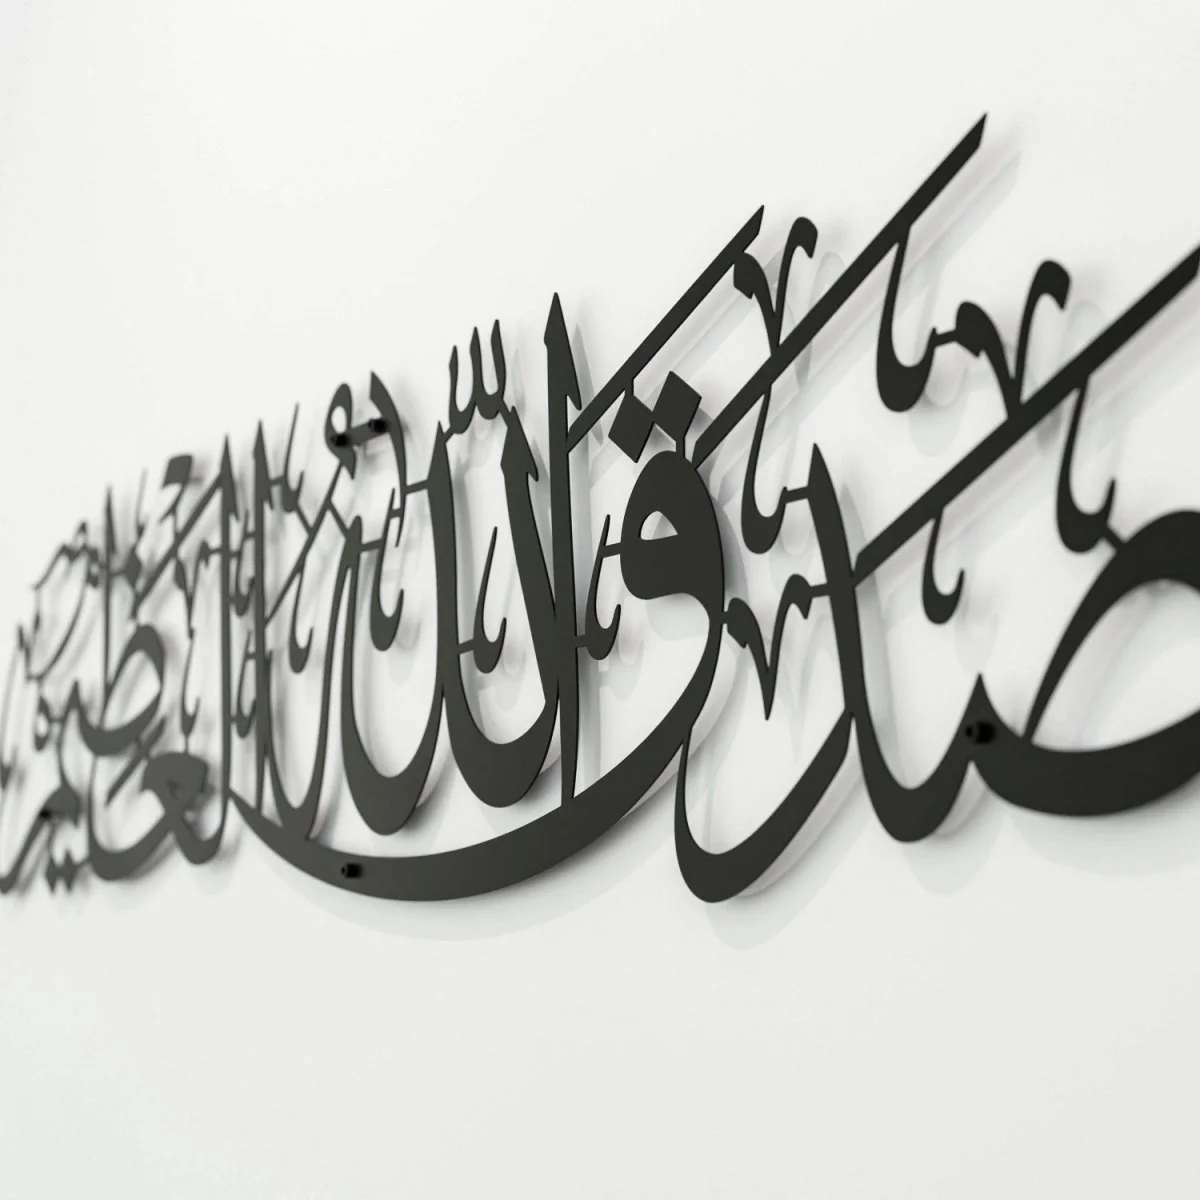 صَدَقَ اللّٰهُ الْعَظِيم